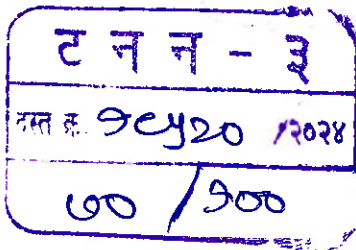 ट न न - ३
दस्त क्र. १८५२० /२०२४
७० / १००